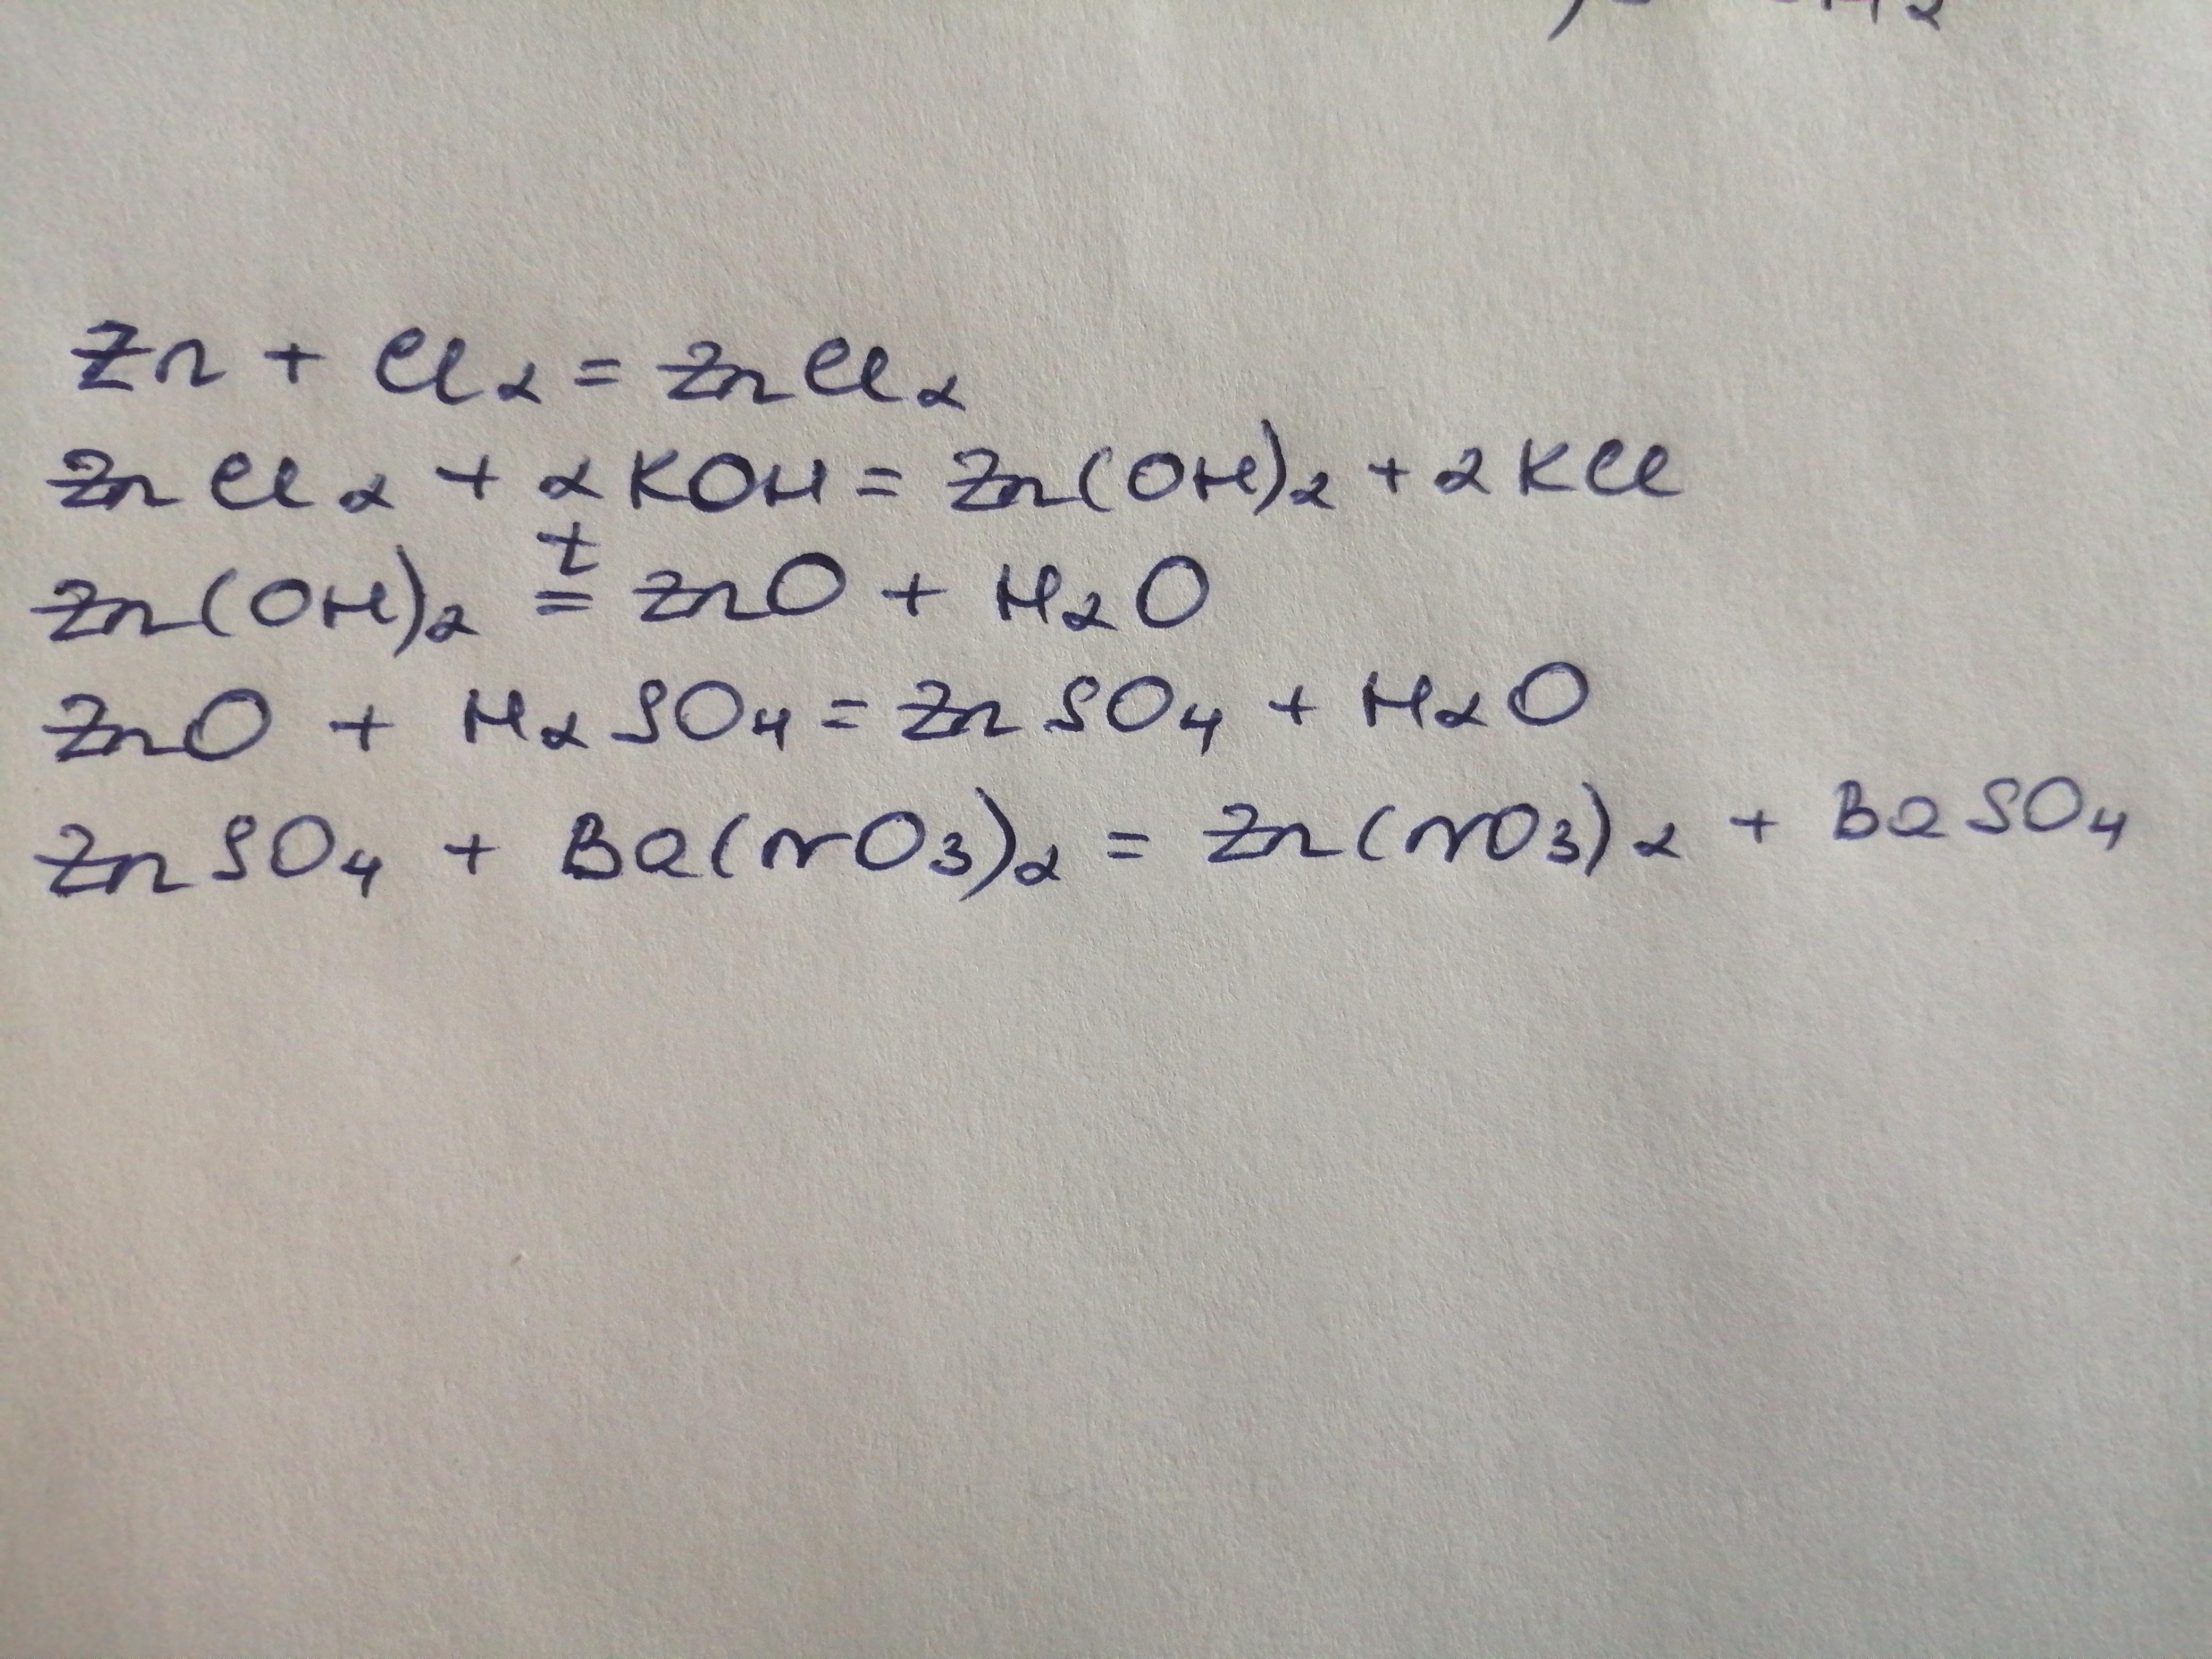 H₂
Zn + Cl₂ = ZnCl₂
ZnCl₂ + 2KOH = Zn(OH)₂ + 2KCl
Zn(OH)₂ =ᵗ ZnO + H₂O
ZnO + H₂SO₄ = ZnSO₄ + H₂O
ZnSO₄ + Ba(NO₃)₂ = Zn(NO₃)₂ + BaSO₄